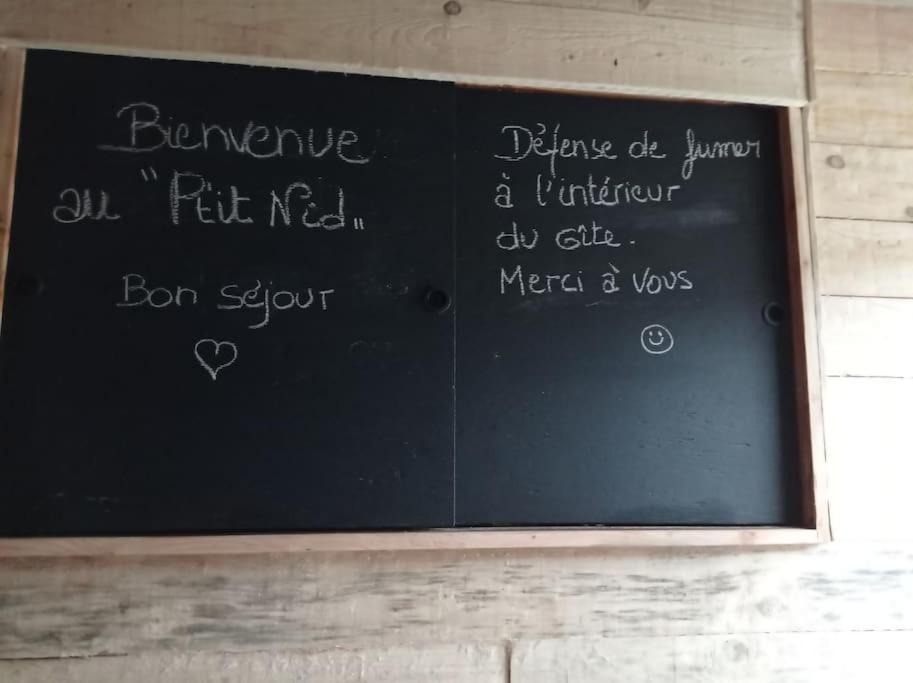 Bienvenue
au "P'tit Nid"
Bon séjour
Défense de fumer
à l'intérieur
du Gîte.
Merci à Vous